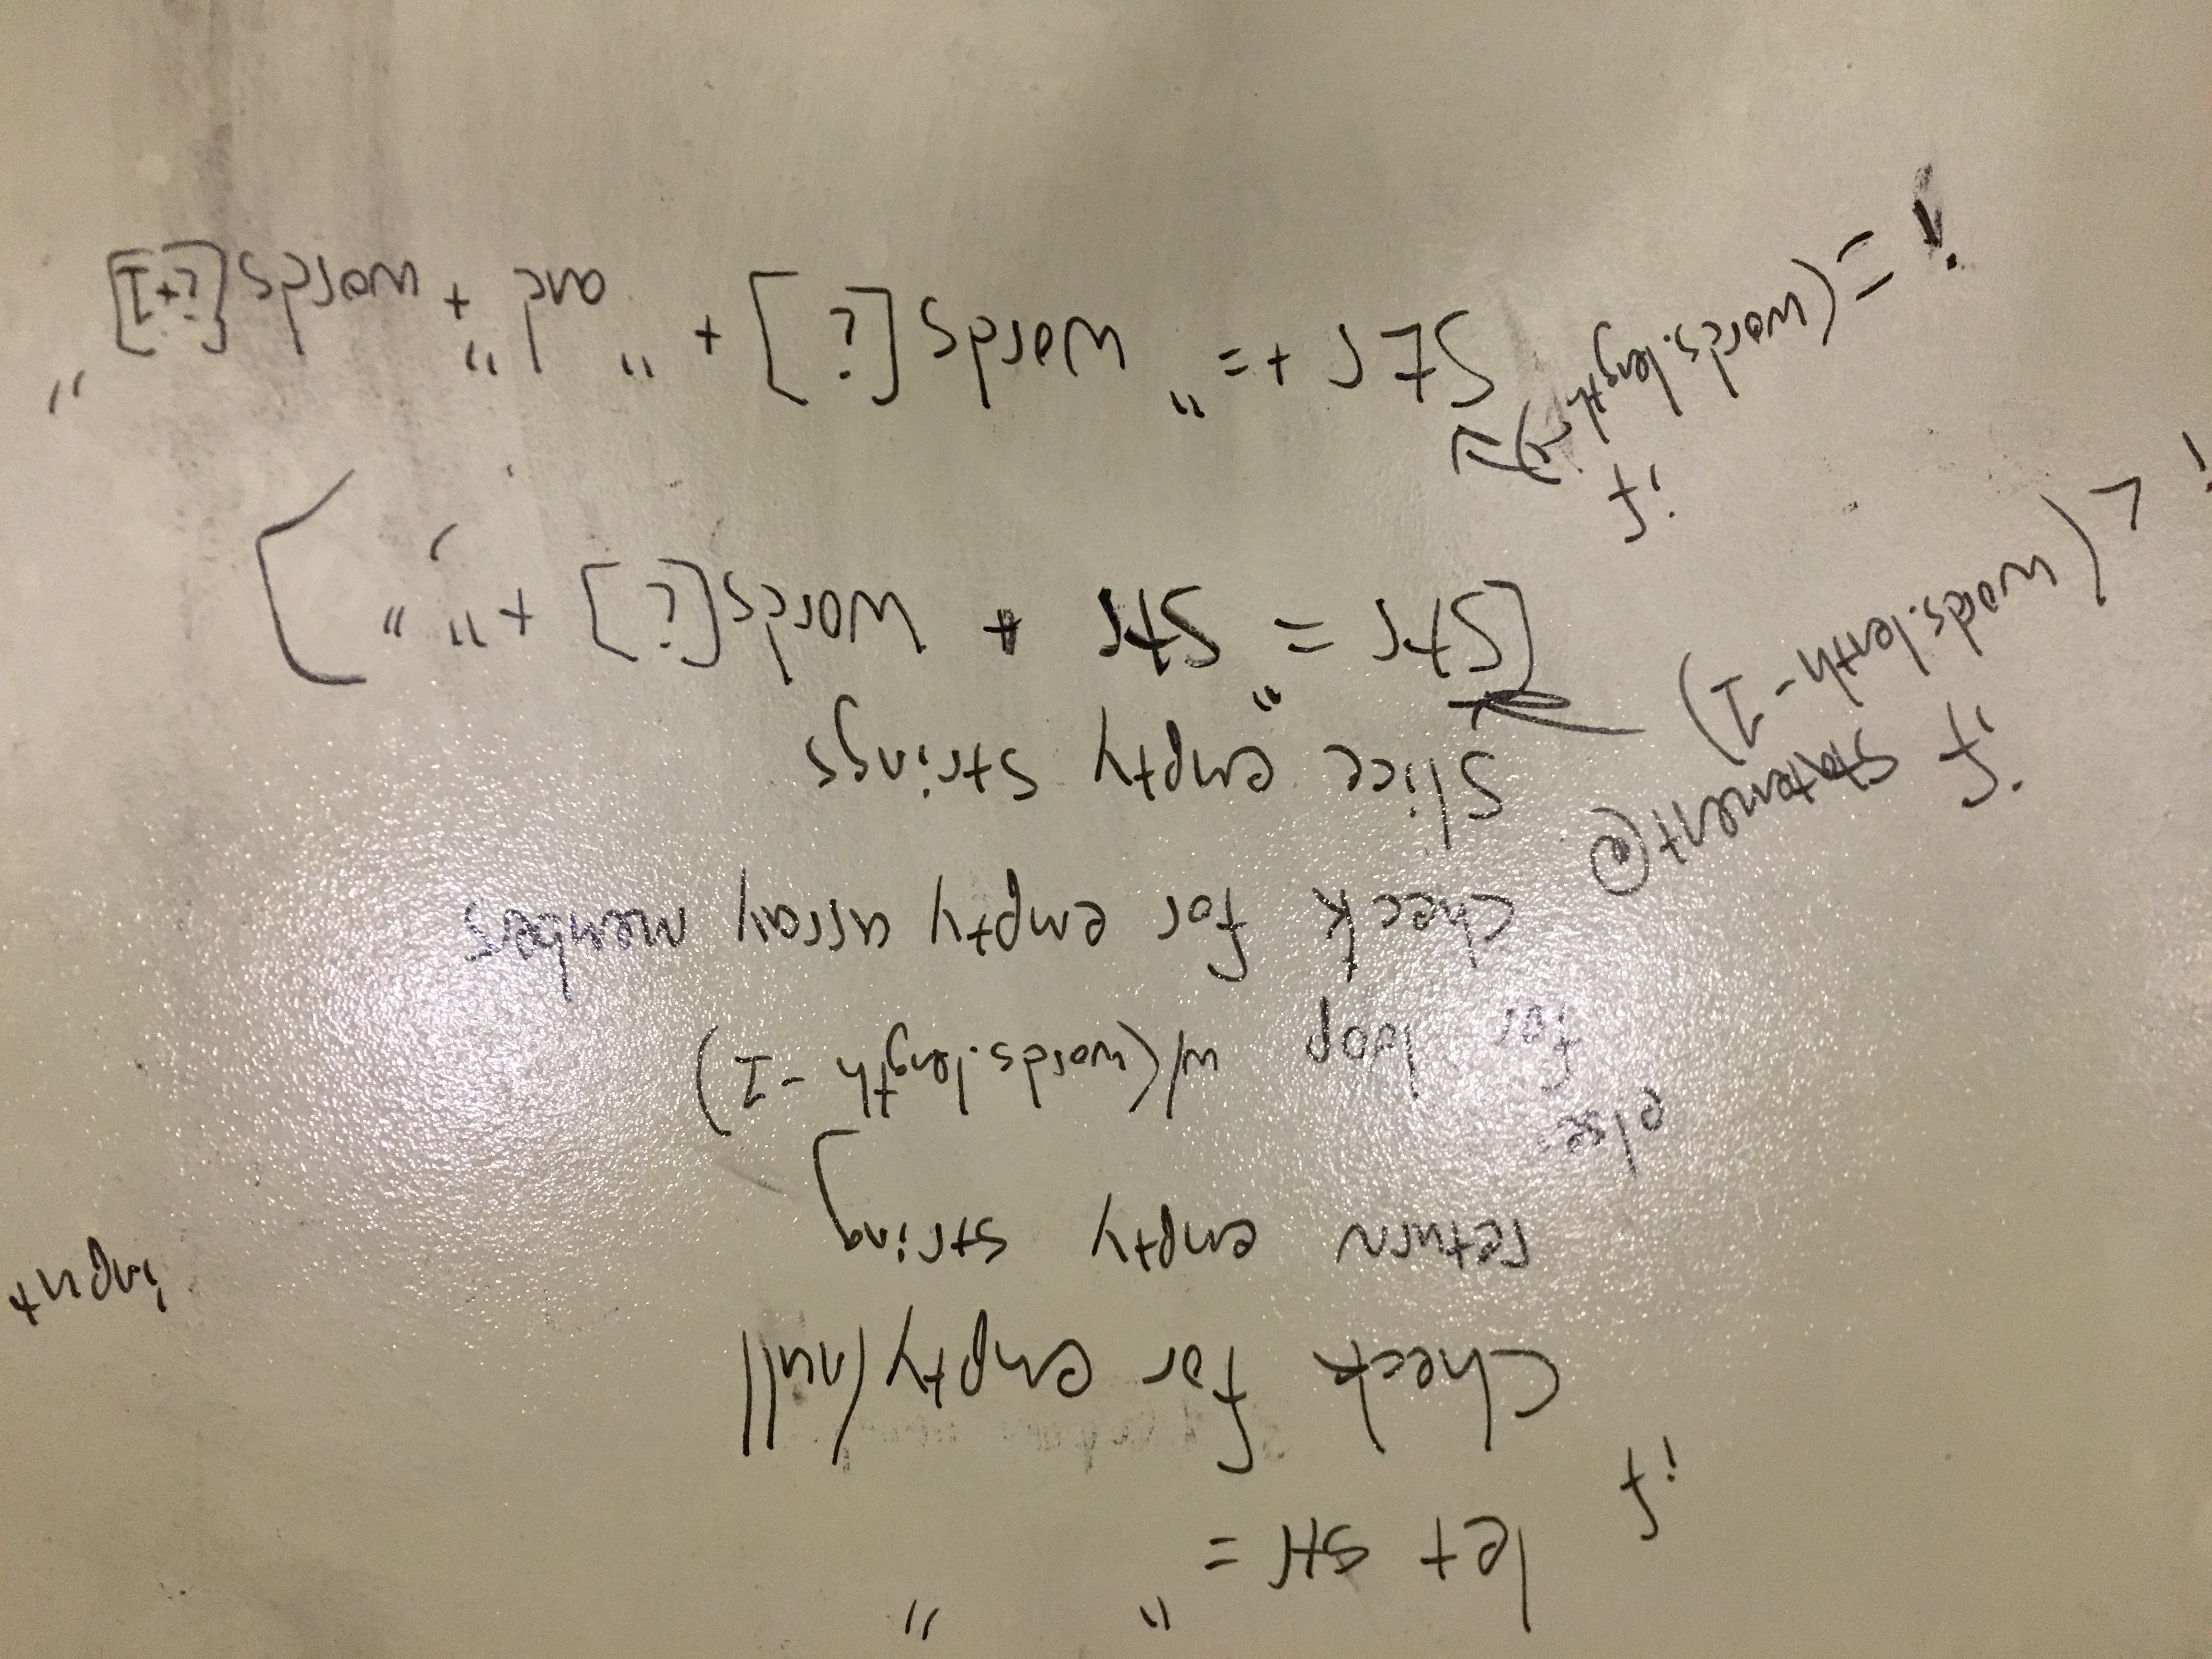 let str = " "
if
Check for empty/null
input
return empty string
else
for loop w/(words.length -1)
check for empty array members
if statement @
Slice empty strings
i < (words.lenth-1)
[Str = "Str + words[i] + ", "]
if
i = (words.length-1)
Str += " words[i] + "and" + words[i+1] "